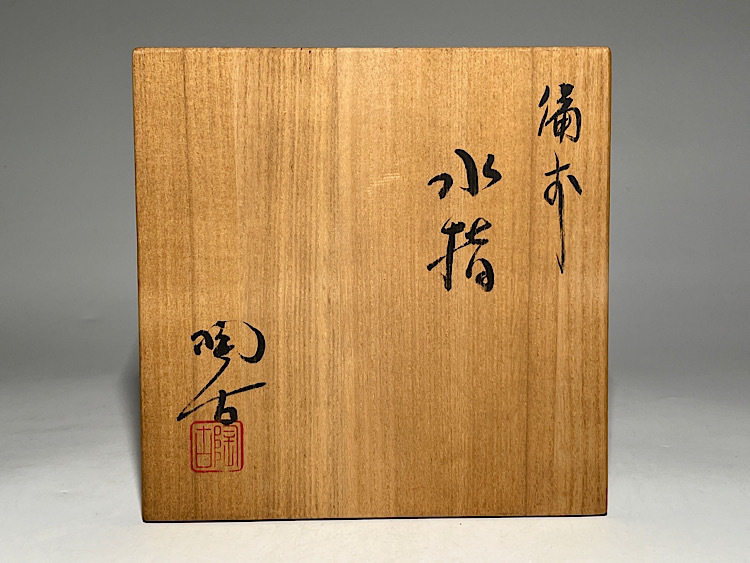 備前
水指
陶古
陶古